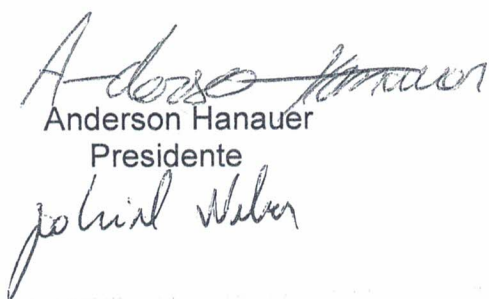 Anderson Hanauer
Anderson Hanauer
Presidente
Weber